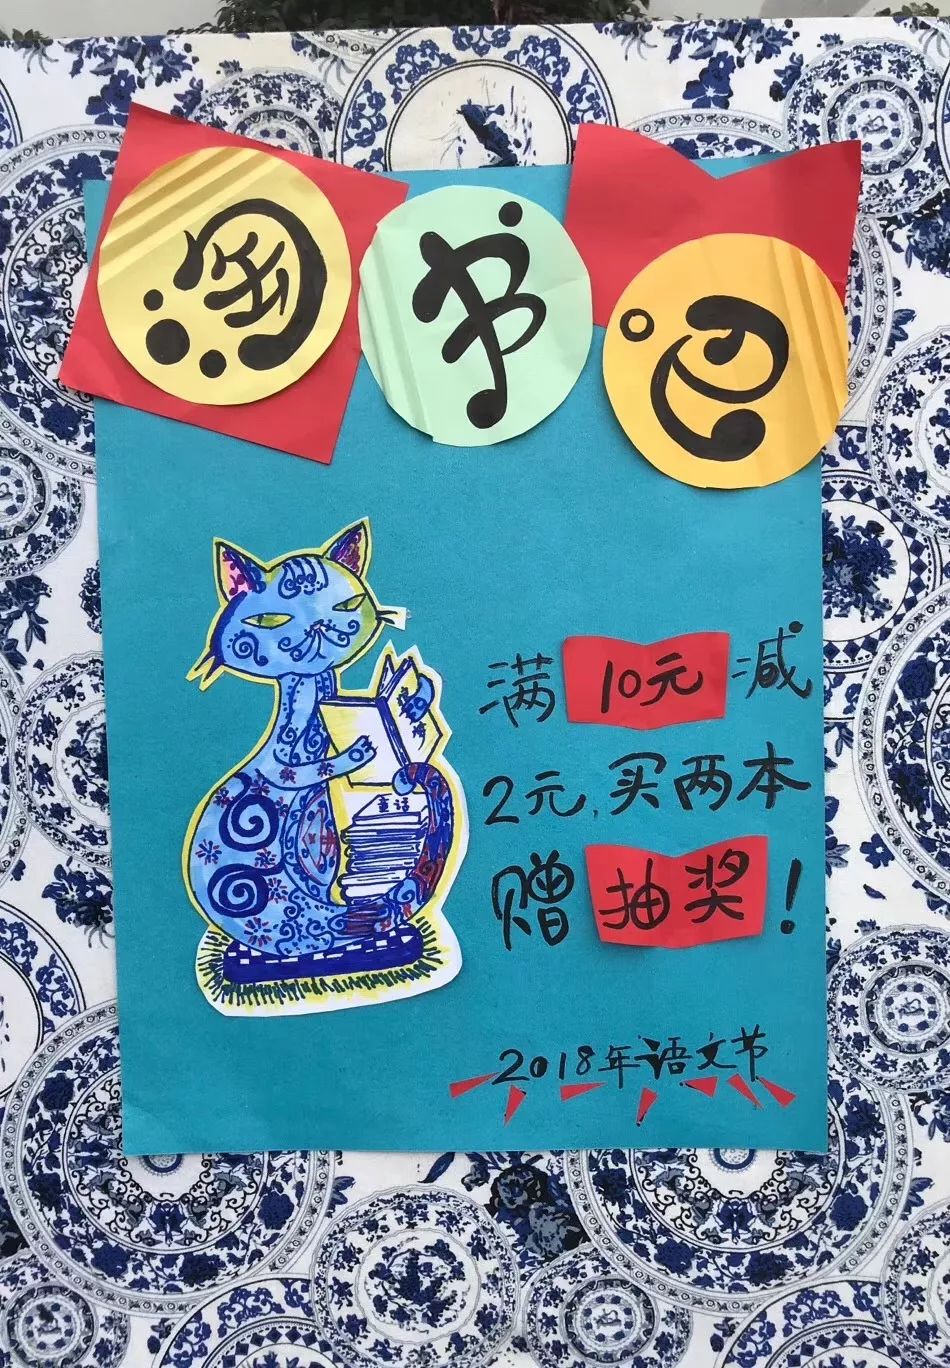 淘书吧
童话
满10元减
2元,买两本
赠抽奖!
2018年语文节